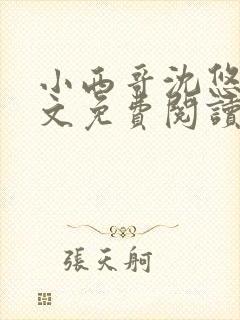 小西哥沈悠
文免費閱讀
張天舸